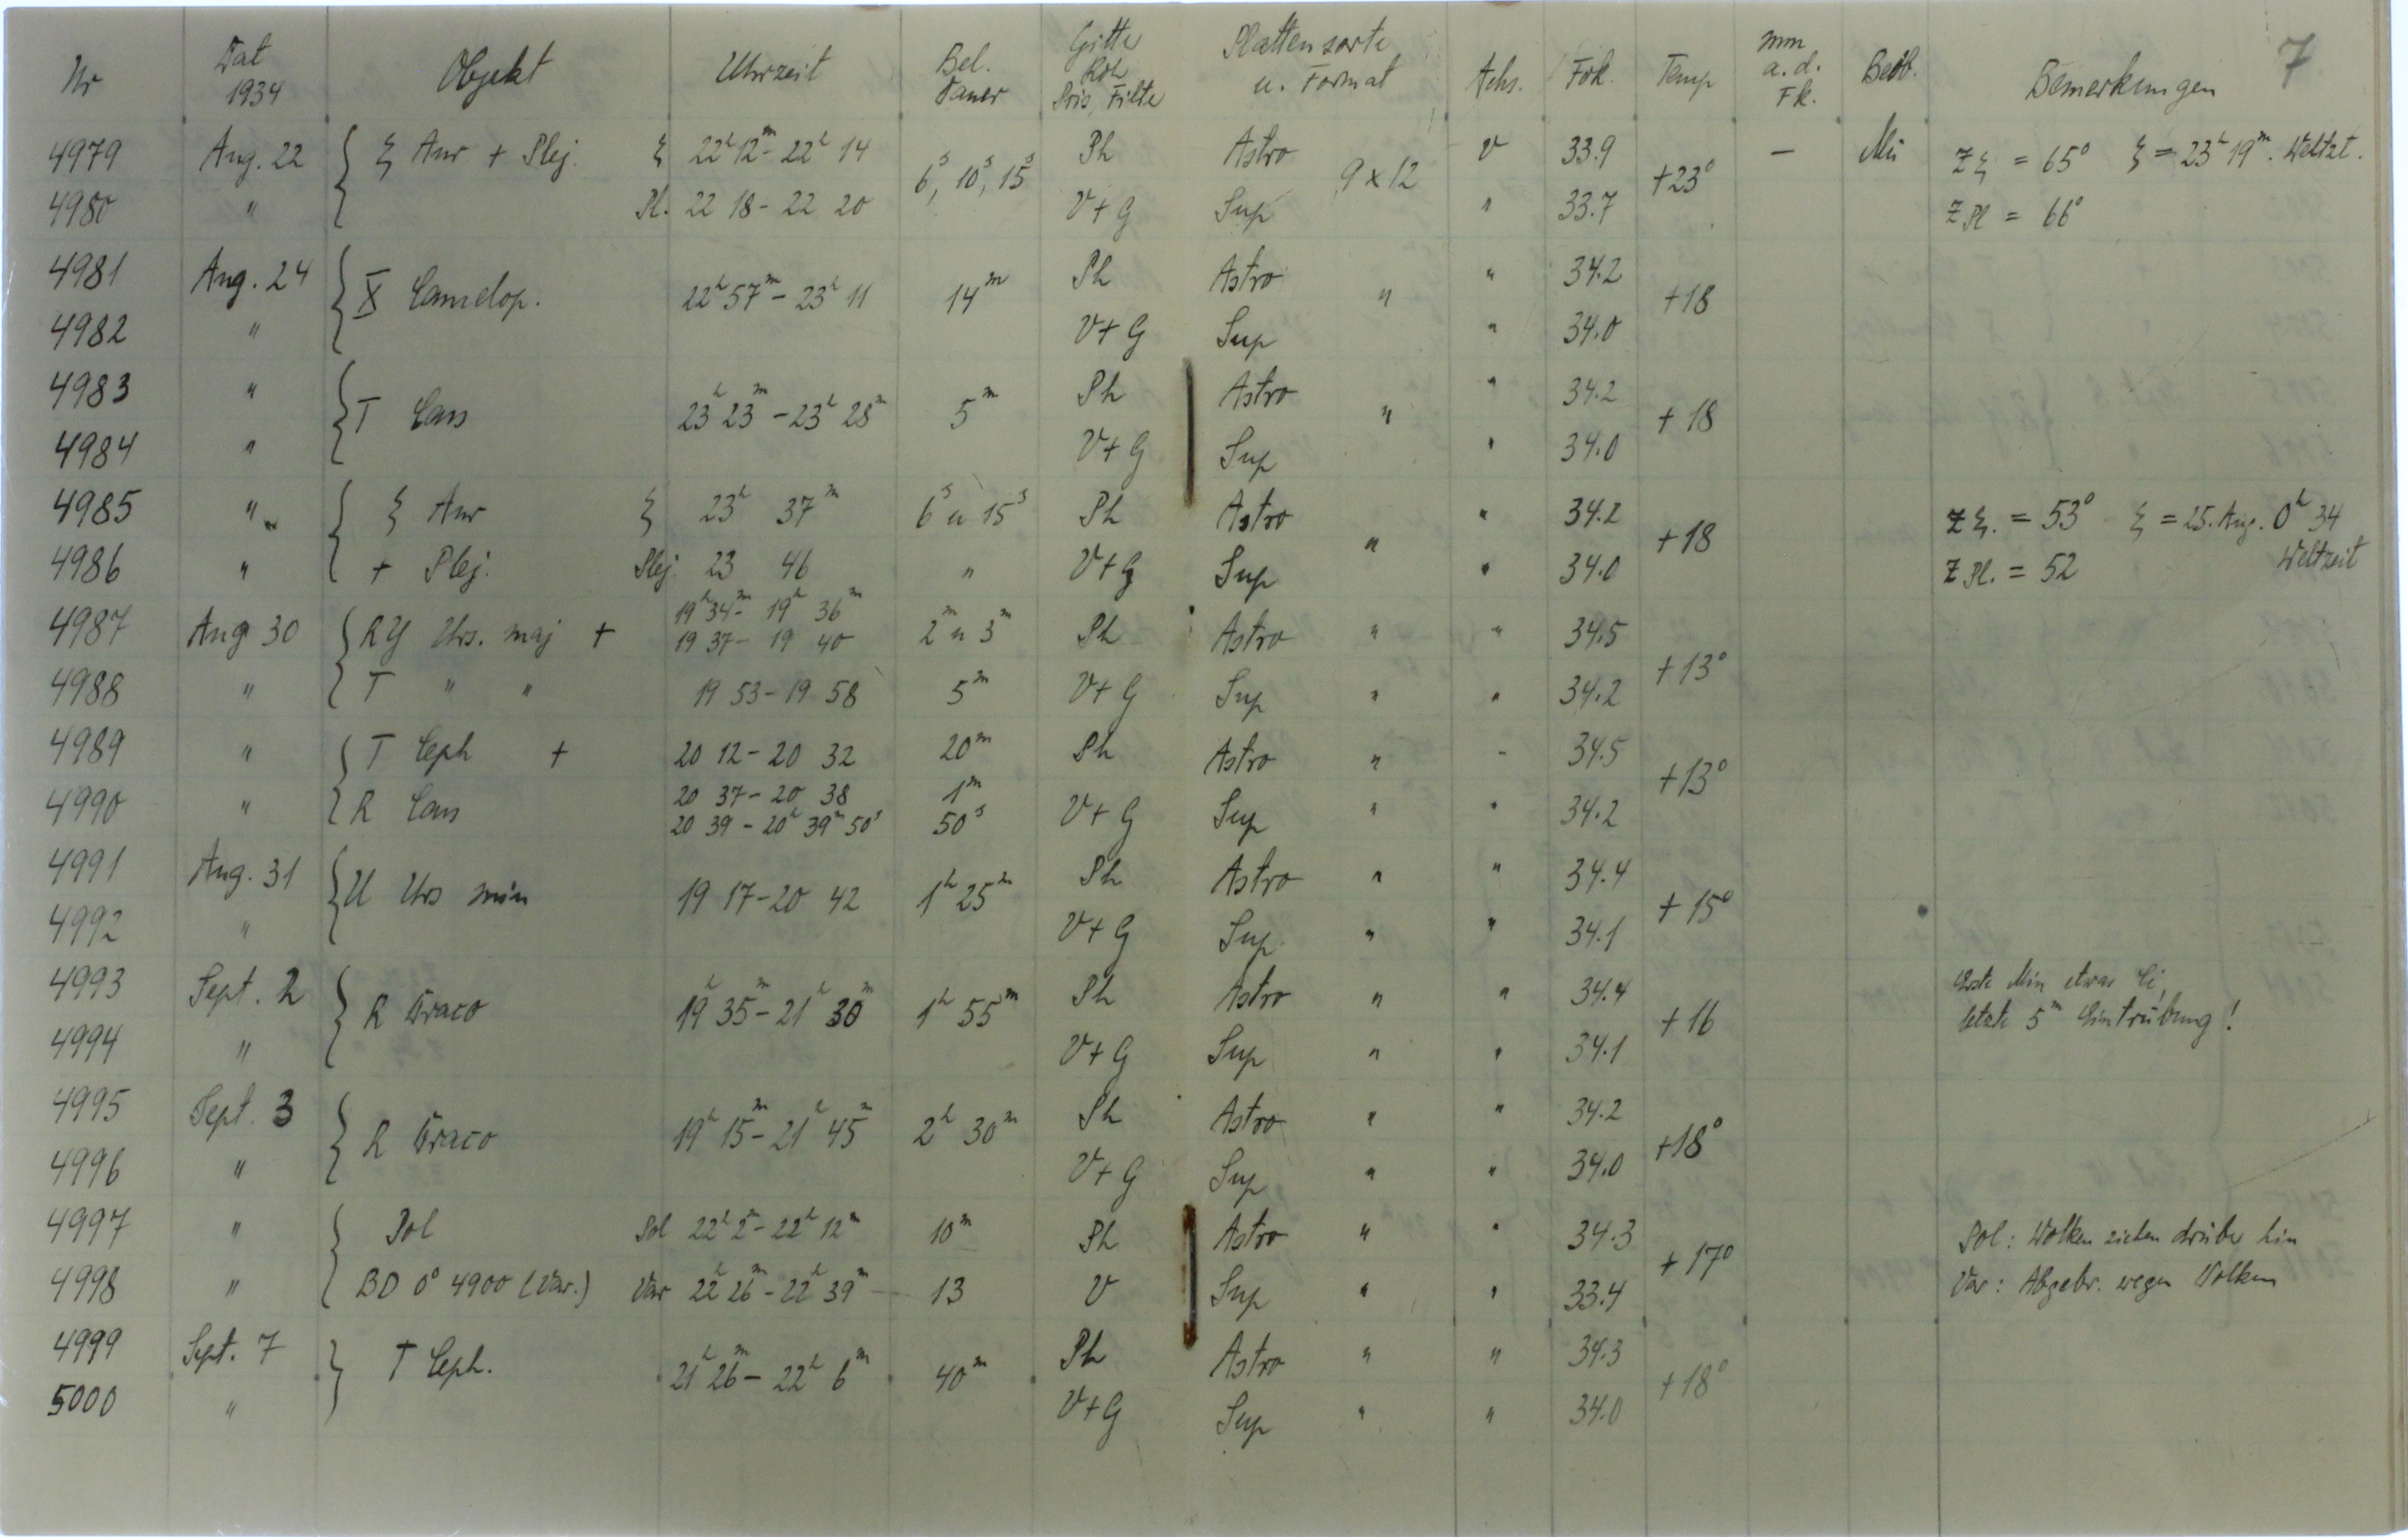 7
Nr Dat 1934 Objekt Uhrzeit Bel. Dauer Gitte Roh Pris, Filte Plattensorte u. Format Achs. Fok. Temp mm a.d. Fk. Beob. Bemerkungen
4979 Aug. 22 ξ Aur + Plej. ξ 22h 12m - 22h 14 6s, 10s, 15s Ph Astro 9 x 12 V 33.9 +23° — Mü zξ = 65° ξ = 23h 19m. Weltzt.
4980 " Pl. 22 18 - 22 20 V+G Sup " 33.7 z Pl = 66°
4981 Aug. 24 X Camelop. 22h 57m - 23h 11 14m Ph Astro " " 34.2 +18
4982 " V+G Sup " 34.0
4983 " T Cass 23h 23m - 23h 28m 5m Ph Astro " " 34.2 +18
4984 " V+G Sup " 34.0
4985 " ξ Aur ξ 23h 37m 6s u 15s Ph Astro " " 34.2 +18 zξ. = 53° ξ = 25. Aug. 0h 34
4986 " + Plej. Plej. 23 46 " V+G Sup " 34.0 z Pl. = 52 Weltzeit
19h 34m - 19h 36m
4987 Aug 30 RY Urs. maj + 19 37 - 19 40 2m u 3m Ph Astro " " 34.5 +13°
4988 " T " " 19 53 - 19 58 5m V+G Sup " " 34.2
4989 " T Ceph + 20 12 - 20 32 20m Ph Astro " " 34.5 +13°
20 37 - 20 38 1m
4990 " R Cass 20 39 - 20h 39m 50s 50s V+G Sup " " 34.2
4991 Aug. 31 U Urs min 19 17 - 20 42 1h 25m Ph Astro " " 34.4 +15°
4992 " V+G Sup " " 34.1
4993 Sept. 2 R Draco 19h 35m - 21h 30m 1h 55m Ph Astro " " 34.4 +16 Erste Min etwas Ci,
4994 " V+G Sup " " 34.1 letzte 5m Eintrübung!
4995 Sept. 3 R Draco 19h 15m - 21h 45m 2h 30m Ph Astro " " 34.2 +18°
4996 " V+G Sup " " 34.0
4997 " Pol Pol 22h 2m - 22h 12m 10m Ph Astro " " 34.3 +17° Pol: Wolken ziehen drüber hin
4998 " BD 0° 4900 (Var.) Var 22h 26m - 22h 39m 13 V Sup " " 33.4 Var: Abgebr. wegen Wolken
4999 Sept. 7 T Ceph. 21h 26m - 22h 6m 40m Ph Astro " " 34.3 +18°
5000 " V+G Sup " " 34.0